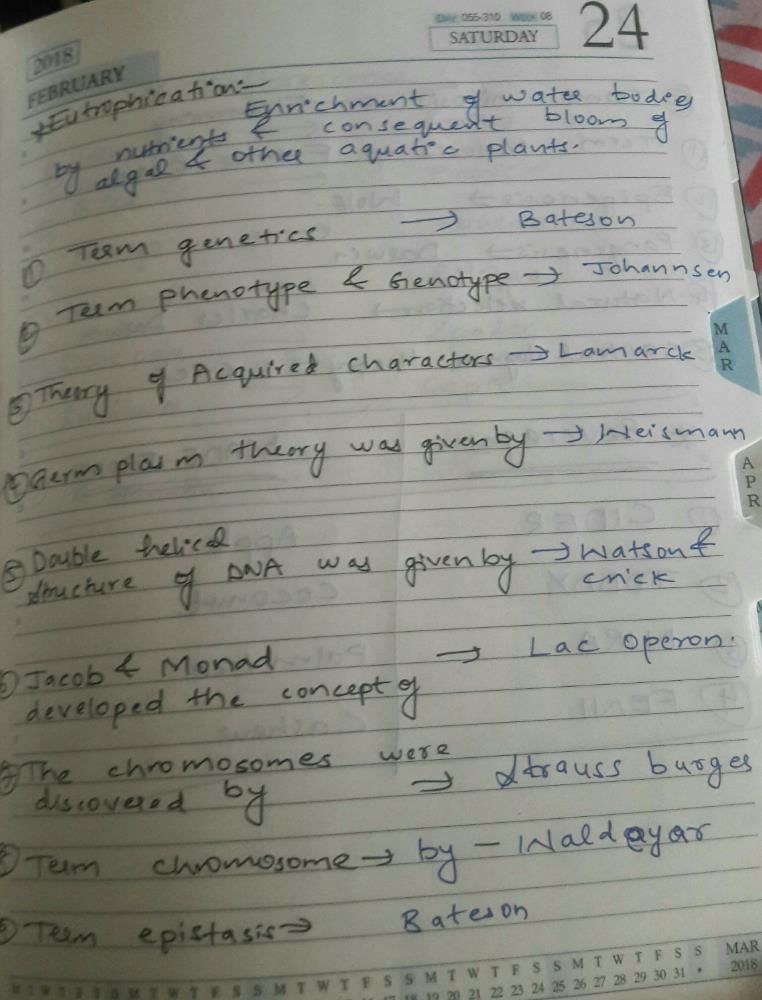 DAY 055-310 WEEK 08
SATURDAY
24
2018
FEBRUARY
*Eutrophication:-
Enrichment of water bodies
by nutrients & consequent bloom of
algal & other aquatic plants.
① Term genetics → Bateson
② Term phenotype & Genotype → Johannsen
③ Theory of Acquired characters → Lamarck
④ Germ plasm theory was given by → Weismann
⑤ Double helical
structure of DNA was given by → Watson &
crick
⑥ Jacob & Monad → Lac operon.
developed the concept of
⑦ The chromosomes were
discovered by → Strauss burges
⑧ Term chromosome → by - Waldeyar
⑨ Term epistasis → Bateson
MAR
APR
S M T W T F S S M T W T F S S
19 20 21 22 23 24 25 26 27 28 29 30 31
MAR
2018